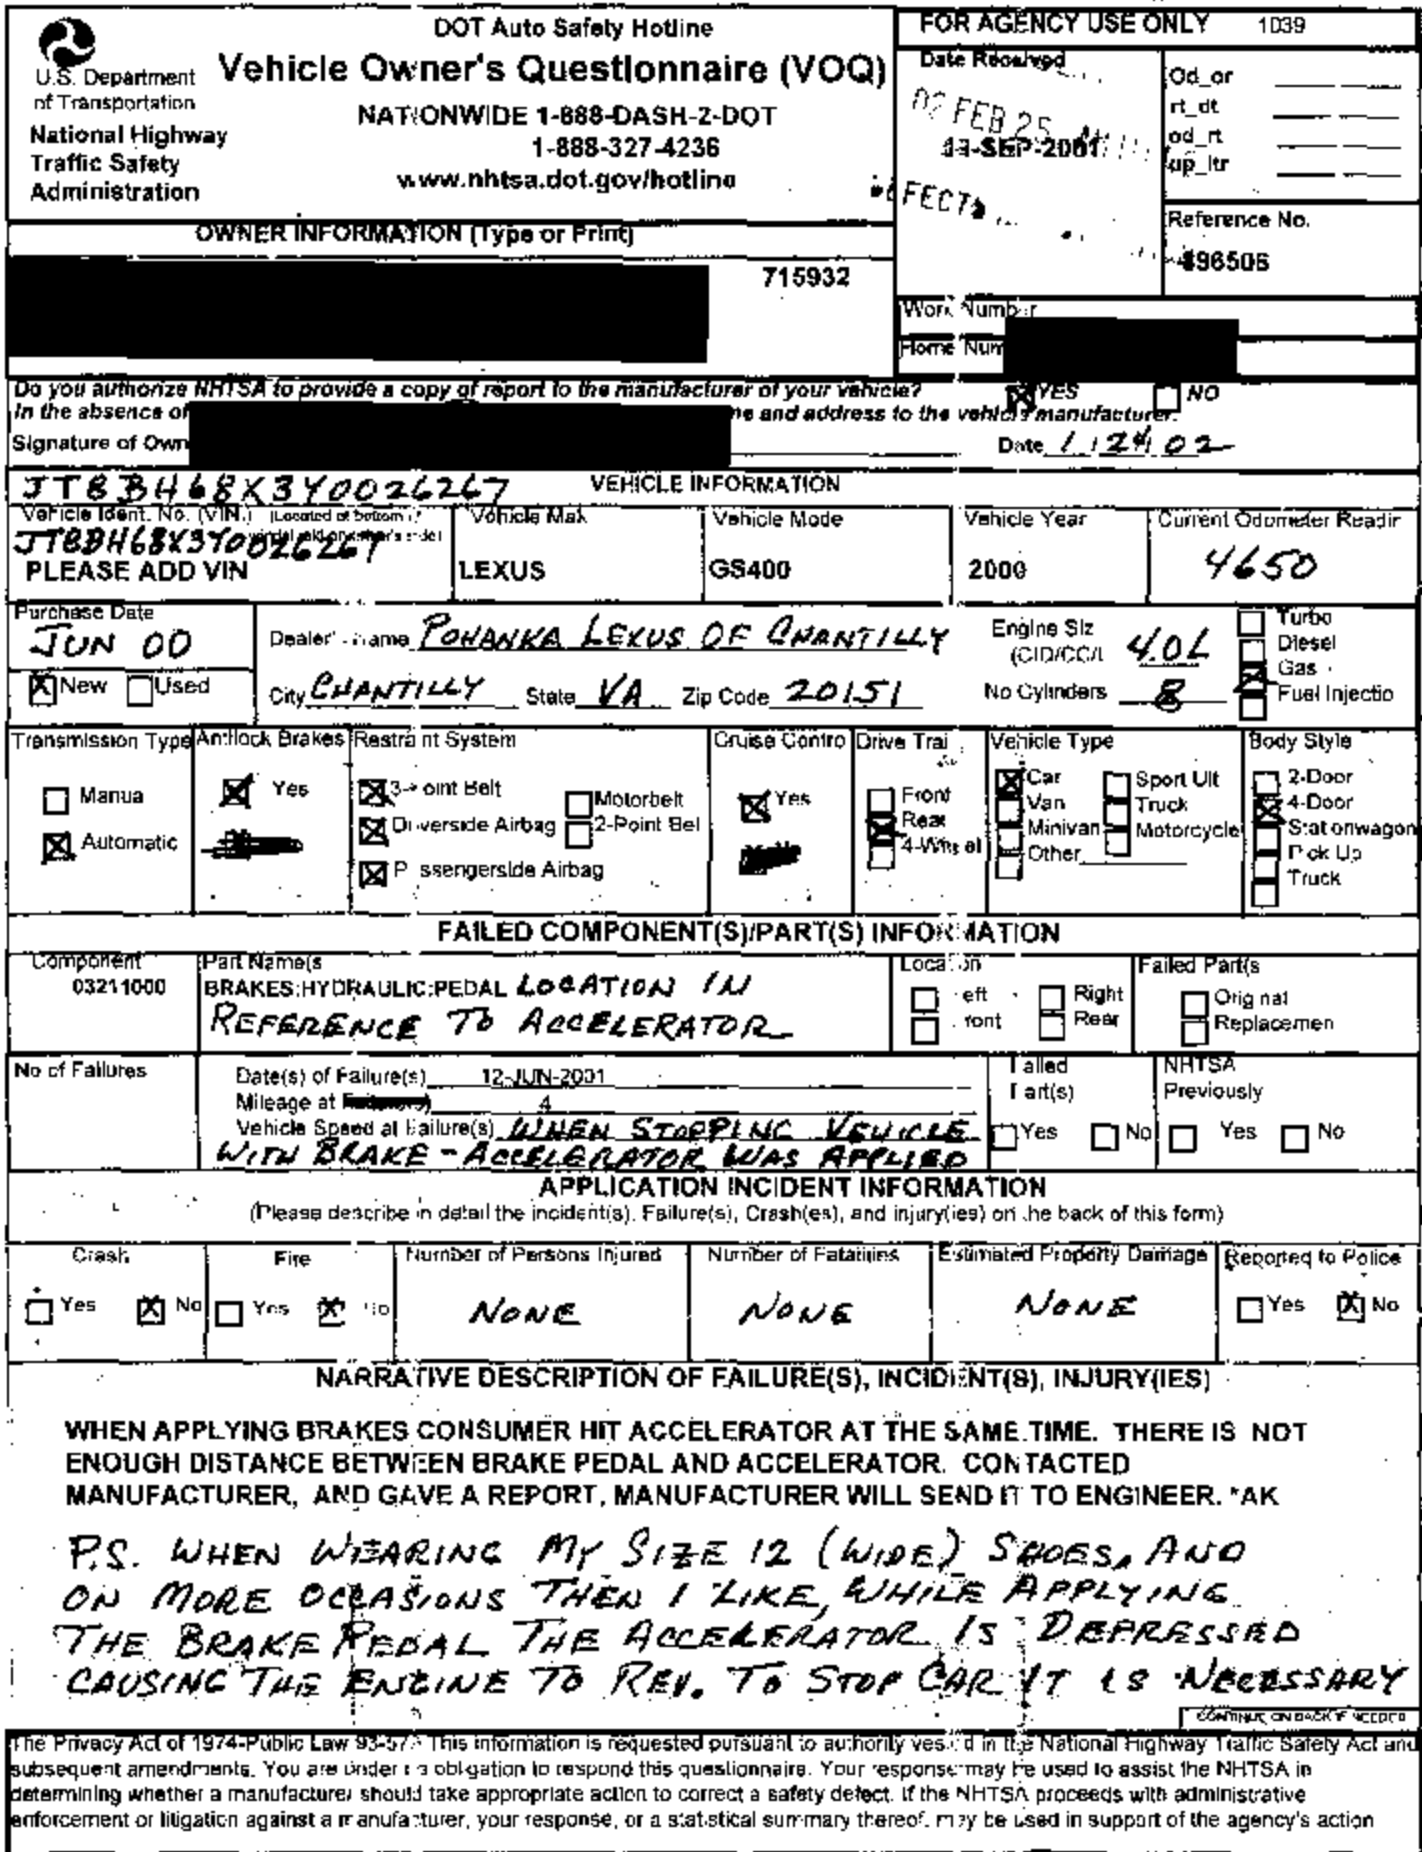 DOT Auto Safety Hotline
Vehicle Owner's Questionnaire (VOQ)
NATIONWIDE 1-888-DASH-2-DOT
1-888-327-4236
www.nhtsa.dot.gov/hotline
U.S. Department
of Transportation
National Highway
Traffic Safety
Administration
FOR AGENCY USE ONLY 1039
Date Received
02 FEB 25
-SEP-2001
FECTS
Od_or
rt_dt
od_rt
up_ltr
Reference No.
896506
OWNER INFORMATION (Type or Print)
715932
Work Number
Home Num
Do you authorize NHTSA to provide a copy of report to the manufacturer of your vehicle? YES NO
In the absence of and address to the vehicle manufacturer.
Signature of Own Date 1/24/02
JT8BH68X3Y0026267 VEHICLE INFORMATION
Vehicle Ident. No. (VIN.) (Located at bottom
JT8BH68X3Y0026267
PLEASE ADD VIN
Vehicle Mak
LEXUS
Vehicle Mode
GS400
Vehicle Year
2000
Current Odometer Readin
4650
Purchase Date
JUN 00
New Used
Dealer's name POHANKA LEXUS OF CHANTILLY
City CHANTILLY State VA Zip Code 20151
Engine Siz
(CID/CC/L 4.0L
No Cylinders 8
Turbo
Diesel
Gas
Fuel Injectio
Transmission Type
Manua
Automatic
Antilock Brakes
Yes
Restraint System
3-Point Belt
Driverside Airbag
Passengerside Airbag
Motorbelt
2-Point Bel
Cruise Contro
Yes
Drive Trai
Front
Rear
4-Wheel
Vehicle Type
Car
Van
Minivan
Other
Sport Ult
Truck
Motorcycle
Body Style
2-Door
4-Door
Stationwagon
Pick Up
Truck
FAILED COMPONENT(S)/PART(S) INFORMATION
Component
03211000
Part Name(s
BRAKES:HYDRAULIC:PEDAL LOCATION IN
REFERENCE TO ACCELERATOR
Location
Left Right
Front Rear
Failed Part(s
Original
Replacemen
No of Failures
Date(s) of Failure(s) 12-JUN-2001
Mileage at 4
Vehicle Speed at Failure(s) WHEN STOPPING VEHICLE
WITH BRAKE - ACCELERATOR WAS APPLIED
Failed
Part(s)
Yes No
NHTSA
Previously
Yes No
APPLICATION INCIDENT INFORMATION
(Please describe in detail the incident(s), Failure(s), Crash(es), and injury(ies) on the back of this form)
Crash
Yes No
Fire
Yes No
Number of Persons Injured
NONE
Number of Fatalities
NONE
Estimated Property Damage
NONE
Reported to Police
Yes No
NARRATIVE DESCRIPTION OF FAILURE(S), INCIDENT(S), INJURY(IES)
WHEN APPLYING BRAKES CONSUMER HIT ACCELERATOR AT THE SAME TIME. THERE IS NOT
ENOUGH DISTANCE BETWEEN BRAKE PEDAL AND ACCELERATOR. CONTACTED
MANUFACTURER, AND GAVE A REPORT, MANUFACTURER WILL SEND IT TO ENGINEER. *AK
P.S. WHEN WEARING MY SIZE 12 (WIDE) SHOES, AND
ON MORE OCCASIONS THEN I LIKE, WHILE APPLYING
THE BRAKE PEDAL THE ACCELERATOR IS DEPRESSED
CAUSING THE ENGINE TO REV. TO STOP CAR IT IS NECESSARY
CONTINUE ON BACK IF NEEDED
The Privacy Act of 1974-Public Law 93-57 This information is requested pursuant to authority vested in the National Highway Traffic Safety Act and
subsequent amendments. You are under no obligation to respond this questionnaire. Your response may be used to assist the NHTSA in
determining whether a manufacturer should take appropriate action to correct a safety defect. If the NHTSA proceeds with administrative
enforcement or litigation against a manufacturer, your response, or a statistical summary thereof, may be used in support of the agency's action